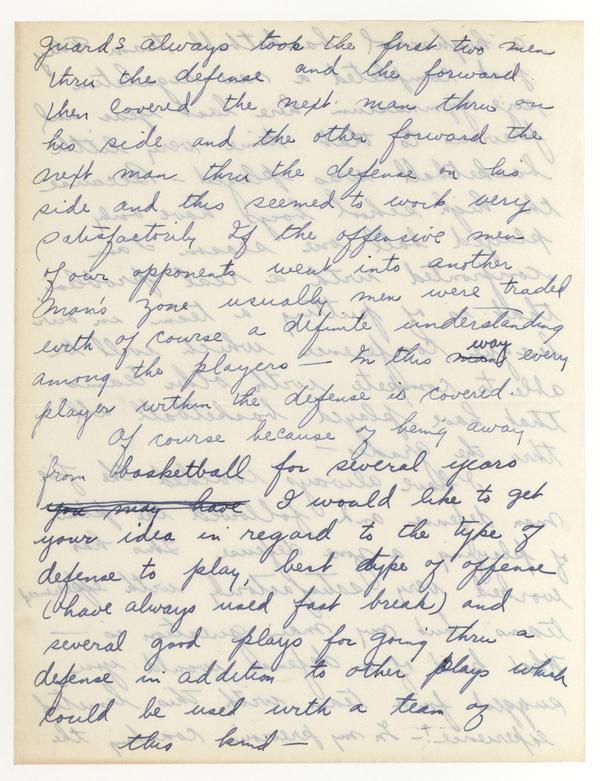 guards always took the first two men
thru the defense and the forward
then covered the next man thru on
his side and the other forward the
next man thru the defense on his
side and this seemed to work very
satisfactorily If the offensive men
of our opponents went into another
man's zone usually men were traded
with of course a definite understanding
among the players — In this way every
player within the defense is covered.
Of course because of being away
from basketball for several years
you may have I would like to get
your idea in regard to the type of
defense to play, best type of offense
(have always used fast break) and
several good plays for going thru a
defense in addition to other plays which
could be used with a team of
this kind —